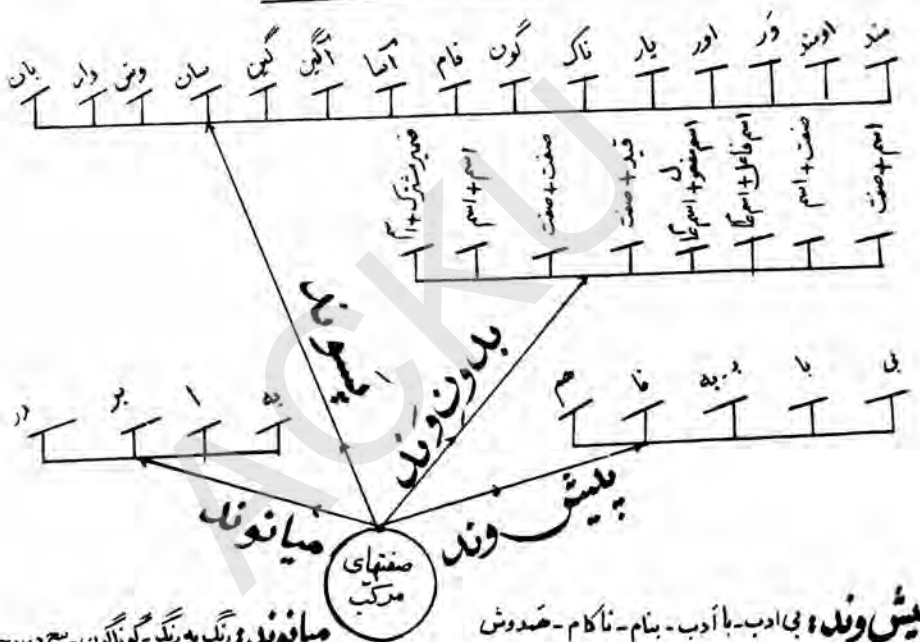 مند اومند وَر اور یار ناک گون فام آسا آگین گین سان وش وار بان
اسم+صفت صفت+اسم اسم فاعل+اسم عا اسم مفعول+اسم عا قید+صفت صفت+صفت اسم+اسم ضمیر مشترک+اسم
پسوند بدونِ وَند
بی با ب-به نا هم
به ا بر در
پیش وند میانوند
صفتهای
مرکب
بی ادب-با اَدب-بنام-ناکام-همدوش
میانوند: رنگ به رنگ-گوناگون
ACKU